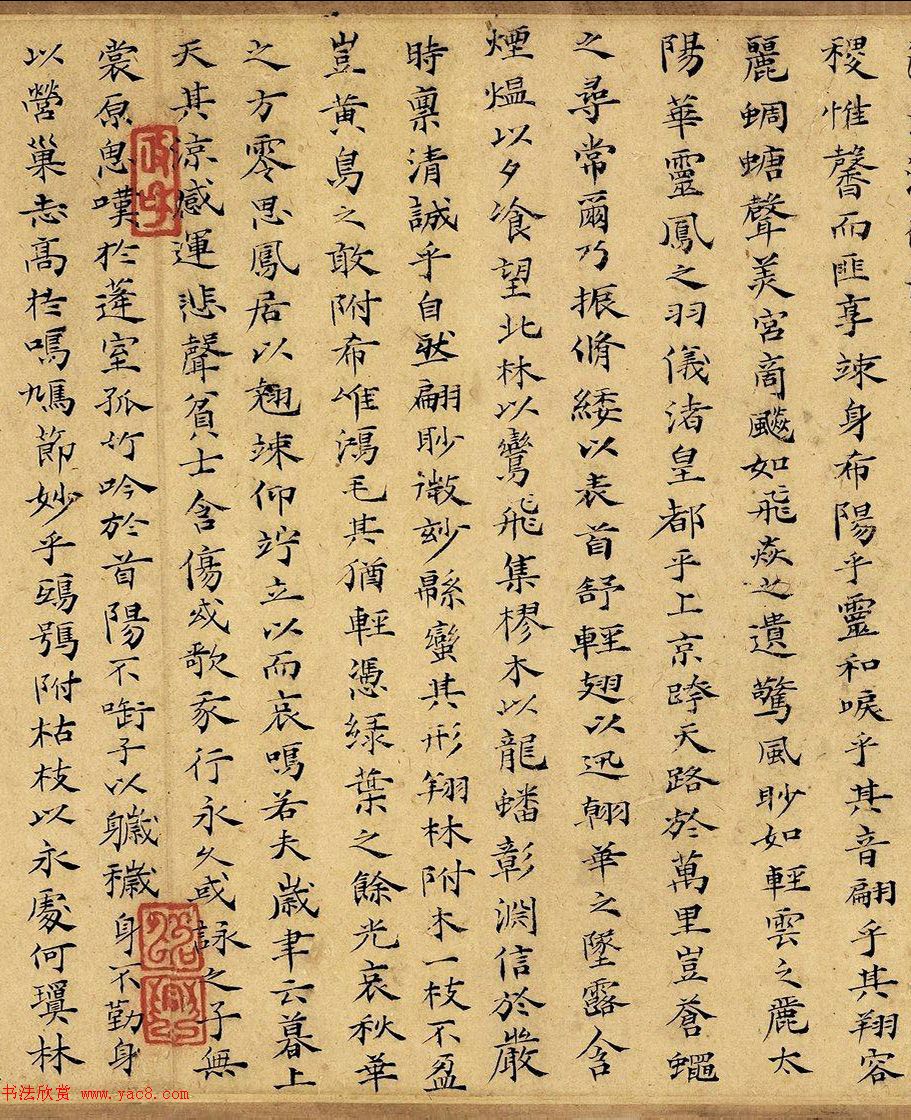 稷惟馨而匪享竦身布陽乎靈和唳乎其音翩乎其翔容
麗蜩螗聲美宮商飈如飛焱之遺驚風眇如輕雲之麗太
陽華靈鳳之羽儀渚皇都乎上京跨天路於萬里豈蒼蠅
之尋常爾乃振脩緌以表首舒輕翅以迅翰華之墜露含
煙熅以夕飡望北林以鸞飛集樛木以龍蟠彰淵信於嚴
時稟清誠乎自然翩眇微玅緜蠻其形翔林附木一枝不盈
豈黃鳥之敢附希唯鴻毛其猶輕憑綠葉之餘光哀秋華
之方零思鳳居以翹竦仰竚立以而哀鳴若夫歲聿云暮上
天其涼感運悲聲貧士含傷或歌豕行永久或詠之子無
裳原思嘆於蓬室孤竹吟於首陽不銜子以穢身不勤身
以營巢志高於鳴鳩節妙乎鴟鴞附枯枝以永處何瓊林
书法欣赏 www.yac8.com